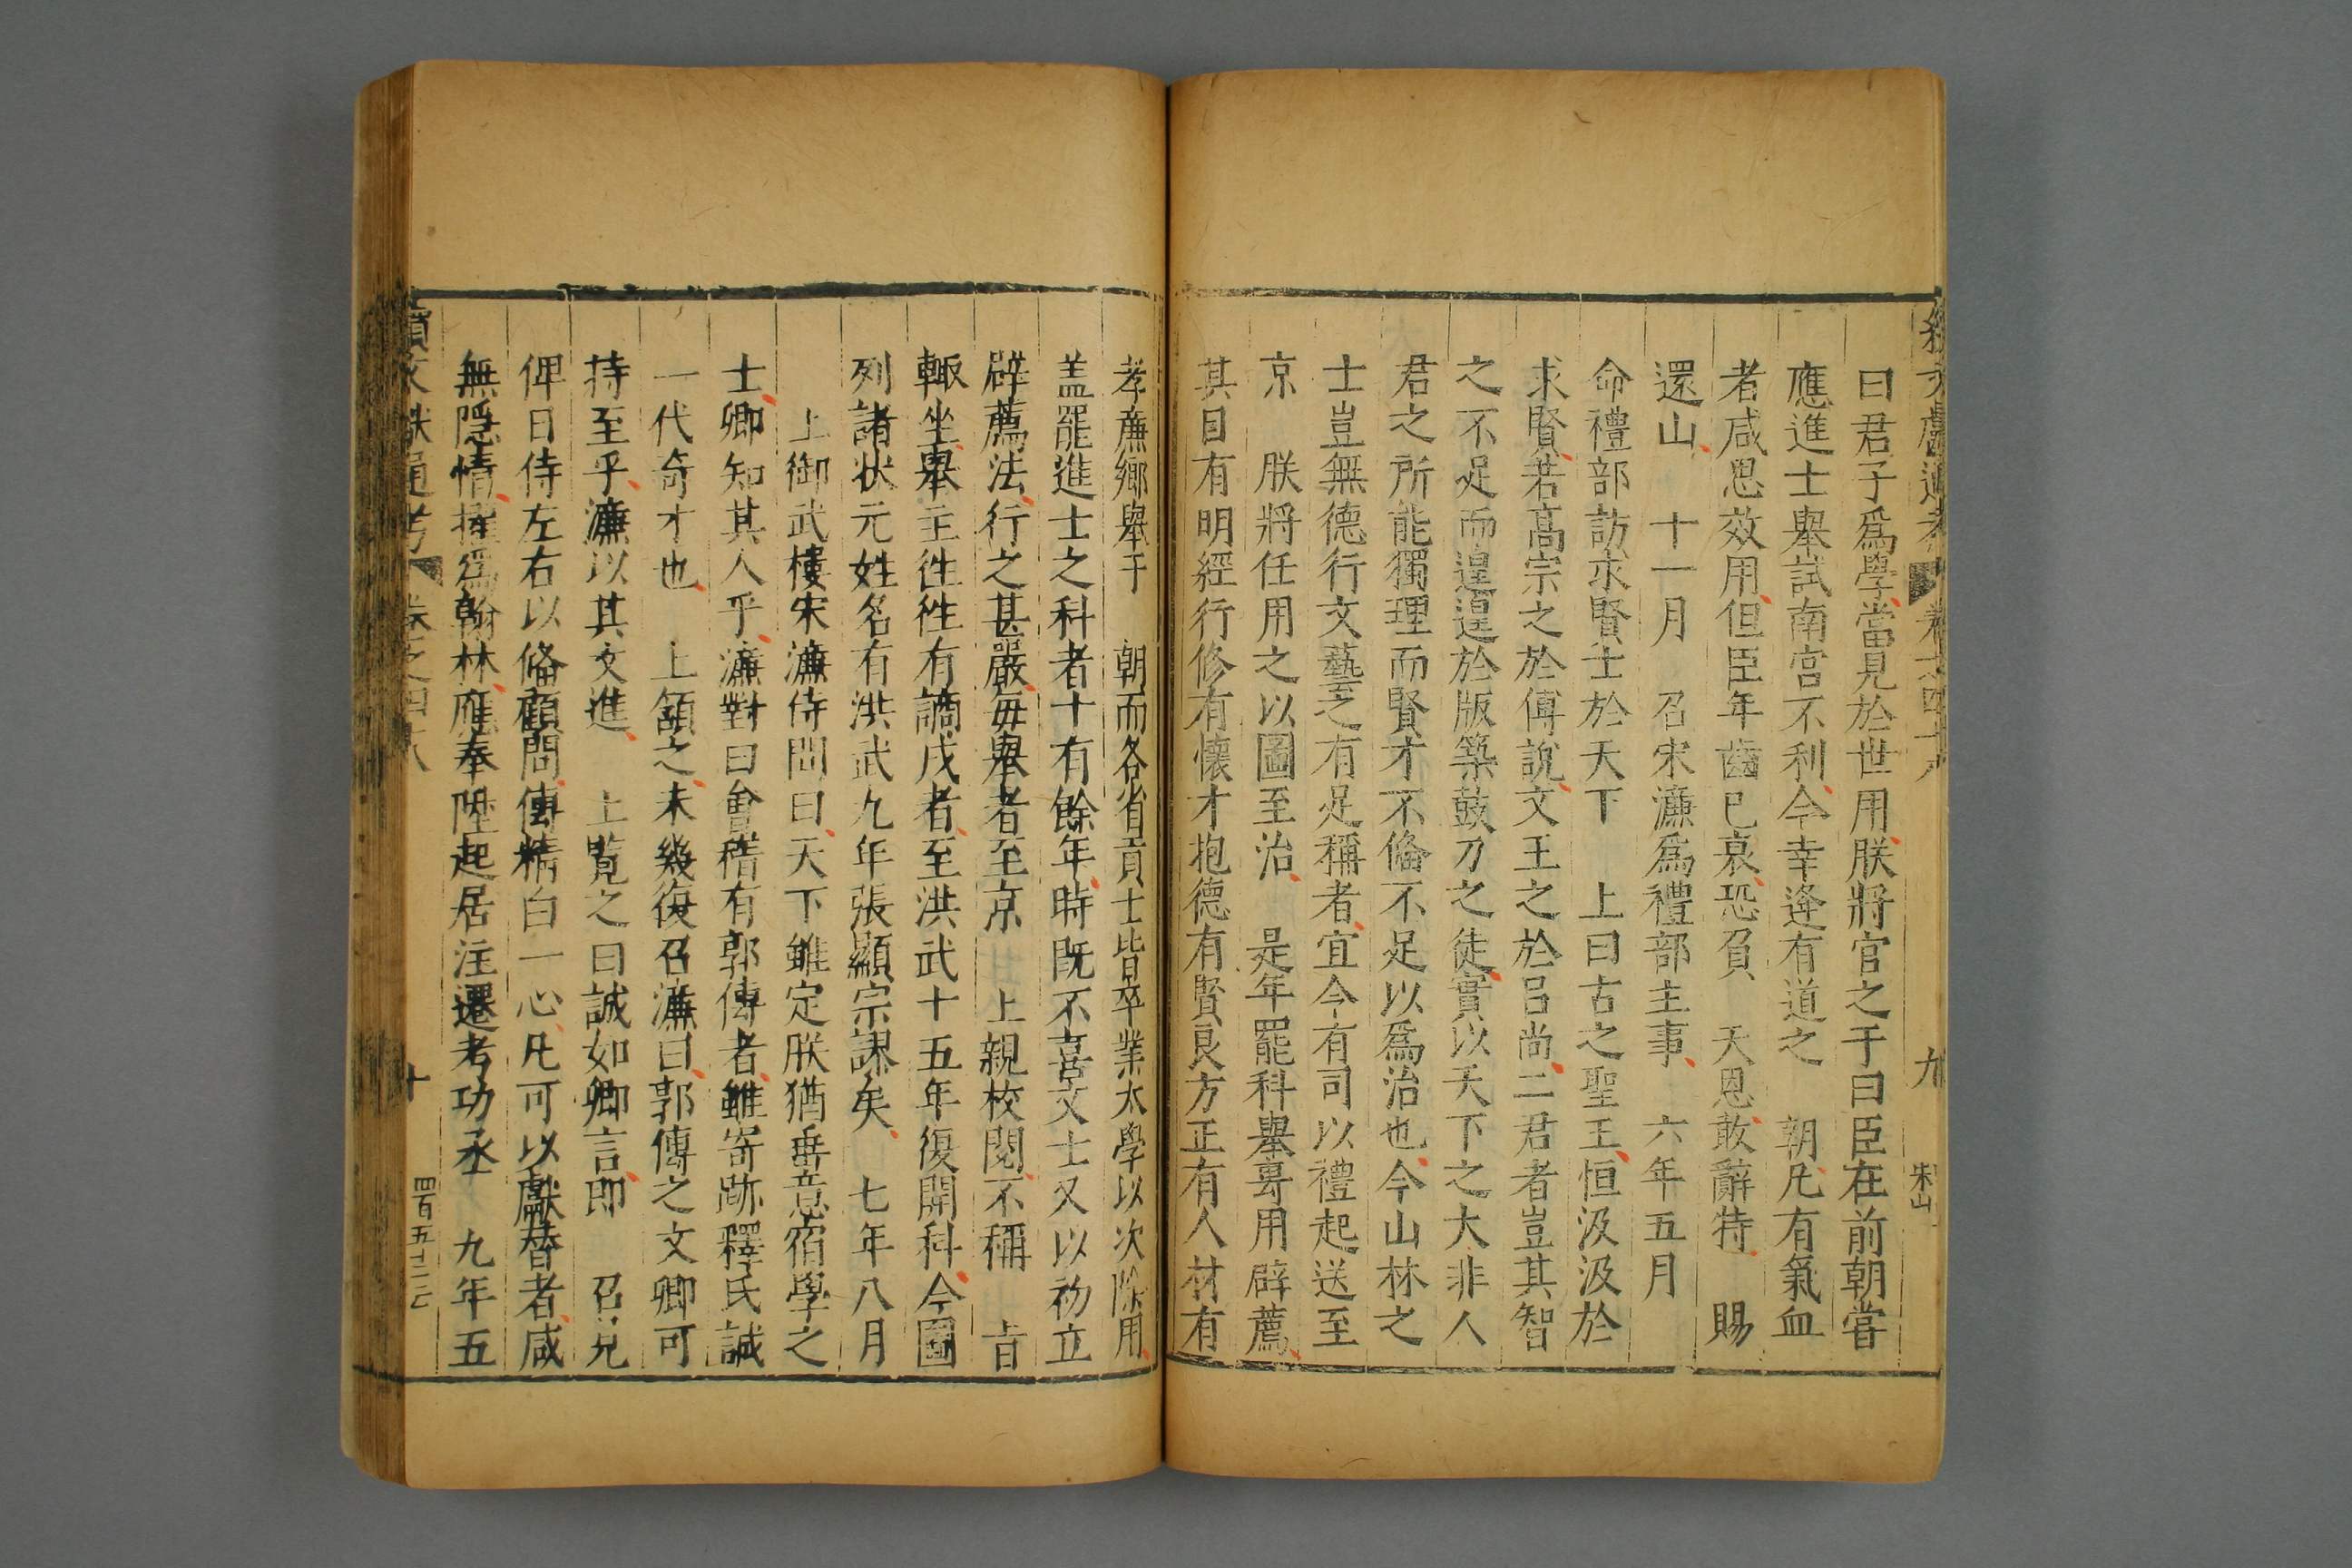 曰君子爲學當見於世用朕將官之于曰臣在前朝嘗
應進士舉試南宫不利今幸逢有道之 朝凡有氣血
者咸思效用但臣年齒已衰恐負 天恩敢辭特 賜
還山 十一月 召宋濂爲禮部主事 六年五月
命禮部訪求賢士於天下 上曰古之聖王恒汲汲於
求賢若高宗之於傅說文王之於吕尚二君者豈其智
之不足而遑遑於版築鼓刀之徒實以天下之大非人
君之所能獨理而賢才不備不足以爲治也今山林之
士豈無德行文藝之有足稱者宜令有司以禮起送至
京 朕將任用之以圖至治 是年罷科舉專用辟薦
其目有明經行修有懷才抱德有賢良方正有人材有
孝廉鄉舉于 朝而各省貢士皆卒業太學以次除用
盖罷進士之科者十有餘年時既不喜文士又以初立
辟薦法行之甚嚴每舉者至京 上親校閱不稱 旨
輙坐舉主徃徃有謫戍者至洪武十五年復開科今圖
列諸狀元姓名有洪武九年張顯宗課矣 七年八月
上御武樓宋濂侍問曰天下雖定朕猶垂意宿學之
士卿知其人乎濂對曰會稽有郭傳者雖寄跡釋氏誠
一代奇才也 上頷之未幾復召濂曰郭傳之文卿可
持至乎濂以其文進 上覽之曰誠如卿言即 召見
俾日侍左右以備顧問傳精白一心凡可以獻替者咸
無隱情擢爲翰林應奉陞起居注遷考功丞 九年五
續文獻通考 卷之四十八 九 宋山
續文獻通考 卷之四十八 十 四百五十二